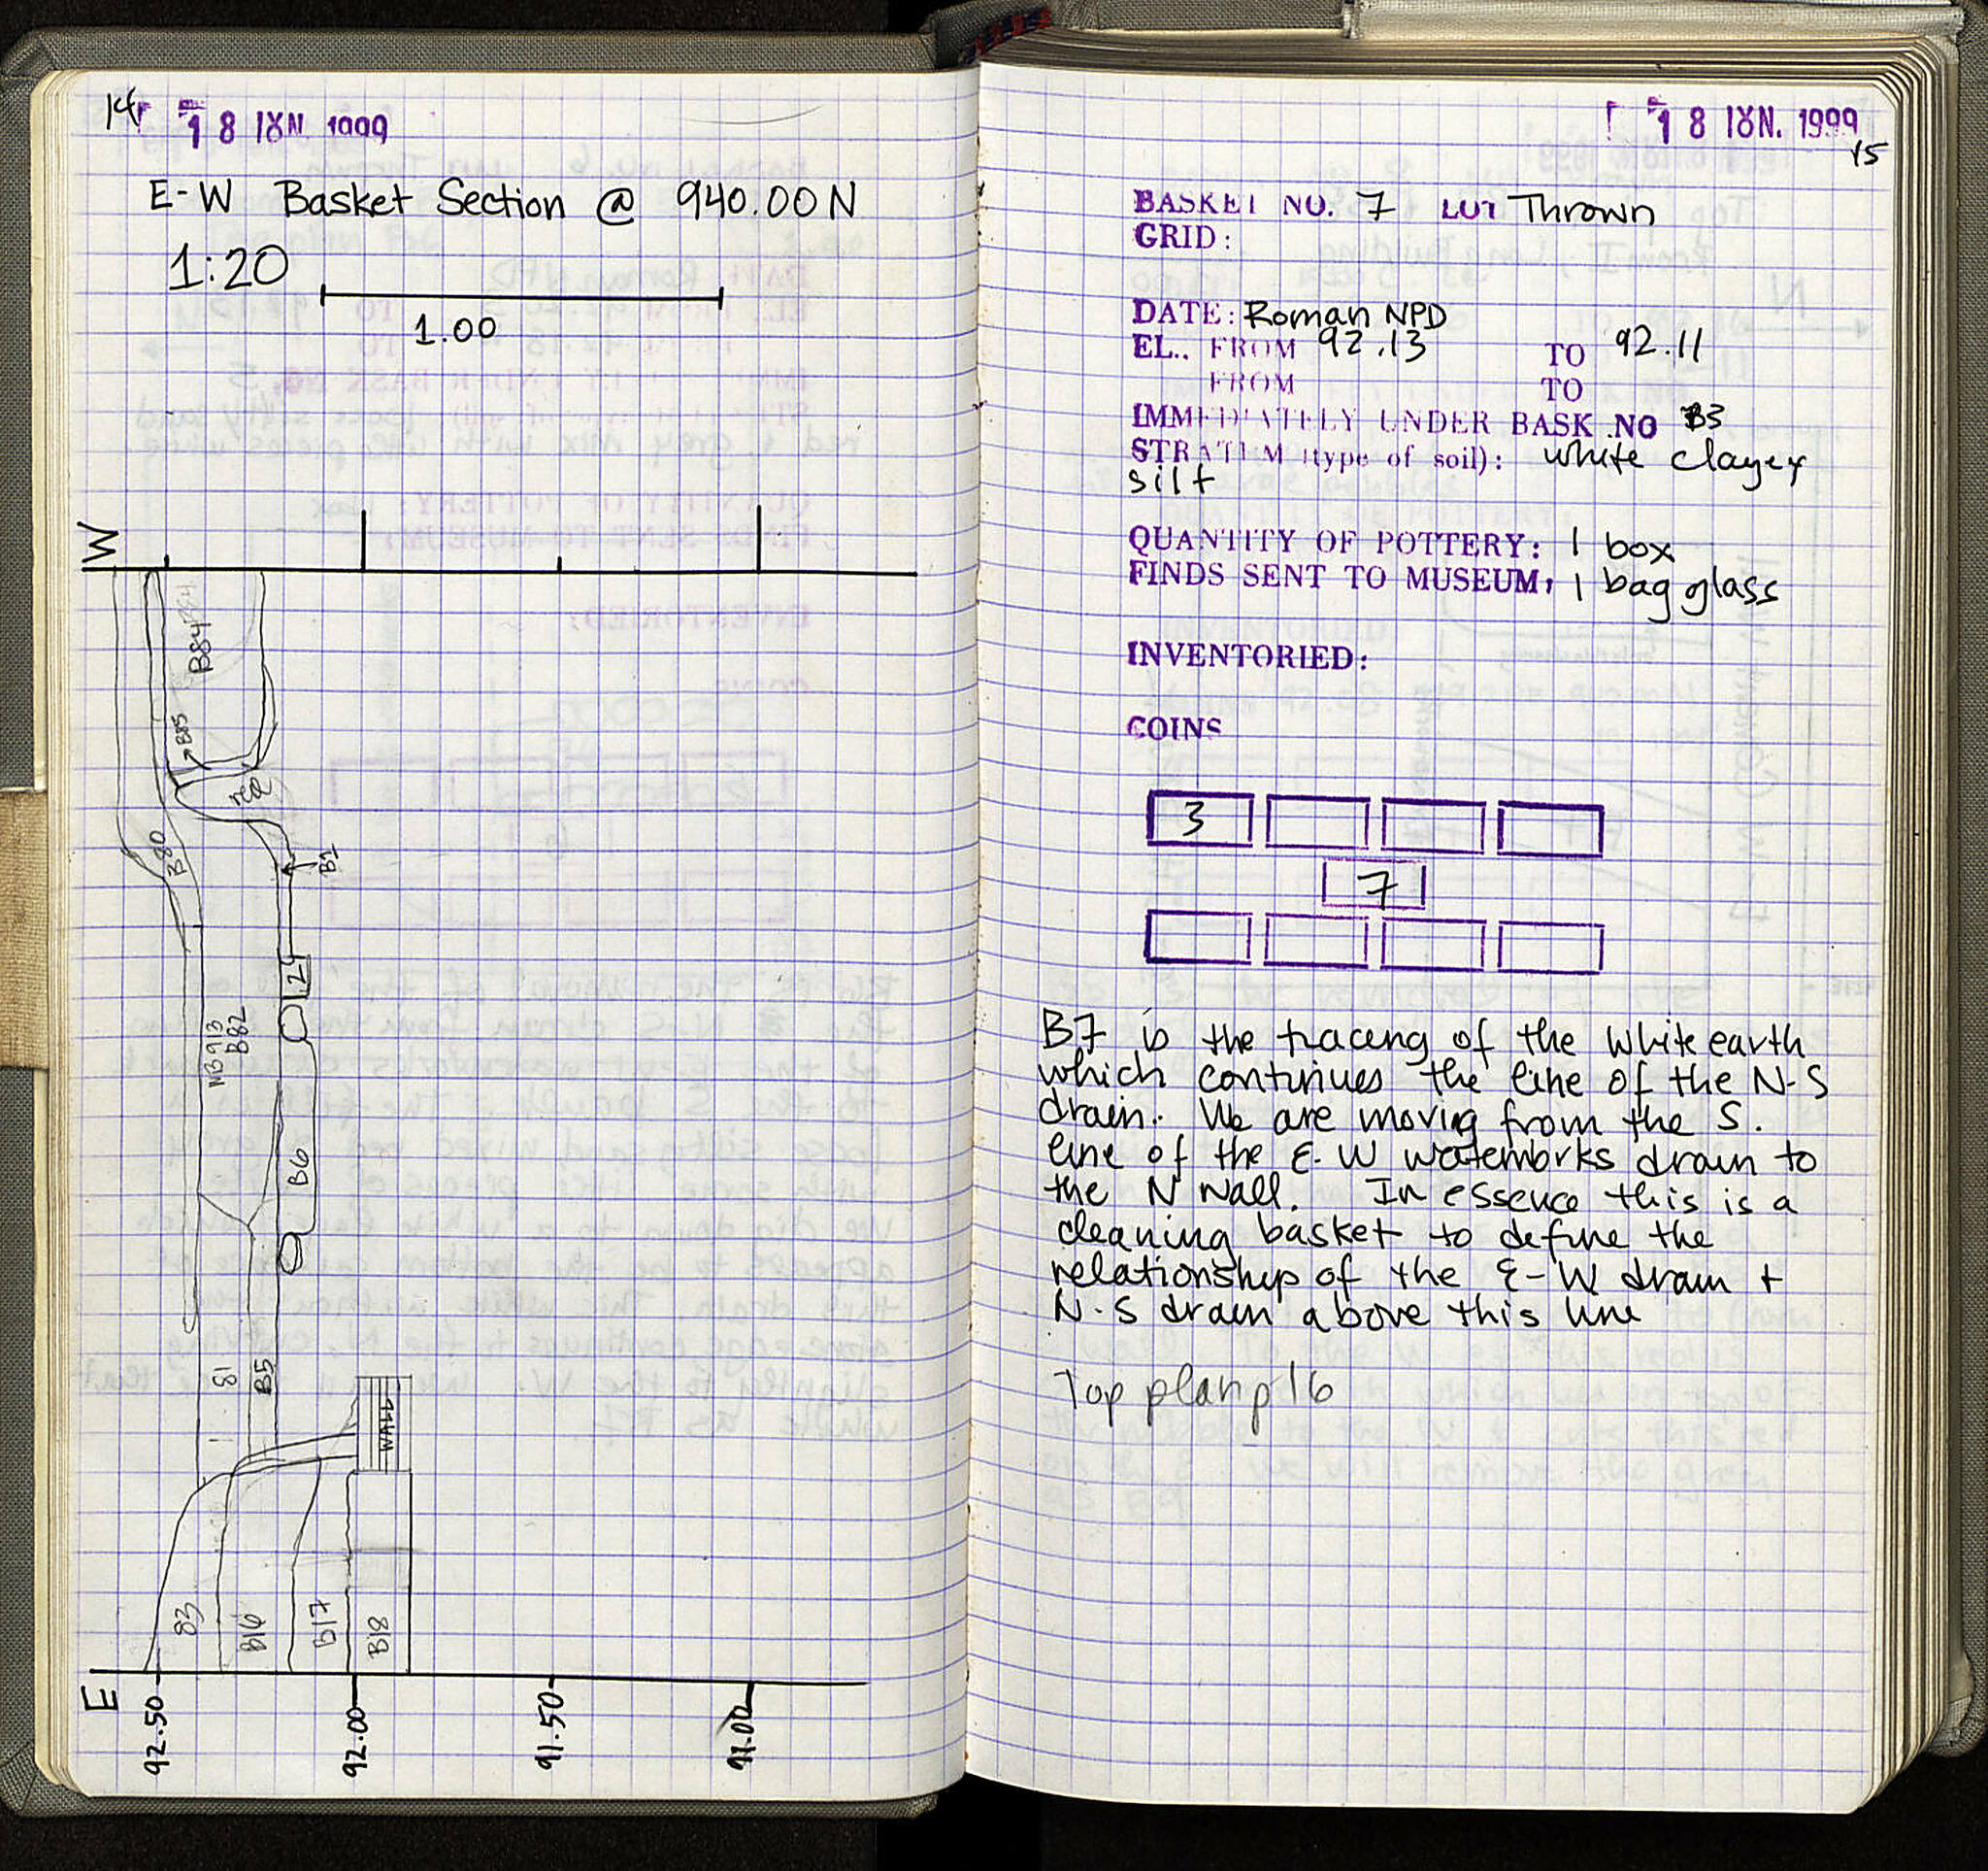 14
18 ΙΟΥΝ. 1999
E-W Basket Section @ 940.00 N
1:20
1.00
W
B84
B85
B80
B1
L24
NB913
B82
B6
81
B5
WALL
83
B16
B17
B18
E
92.50
92.00
91.50
91.00
18 ΙΟΥΝ. 1999
15
BASKET NO. 7 LOT Thrown
GRID:
DATE: Roman NPD
EL.. FROM 92.13 TO 92.11
FROM TO
IMMEDIATELY UNDER BASK. NO B3
STRATUM (type of soil): white clayey
silt
QUANTITY OF POTTERY: 1 box
FINDS SENT TO MUSEUM: 1 bag glass
INVENTORIED:
COINS
3
7
B7 is the tracing of the white earth
which continues the line of the N-S
drain. We are moving from the S.
line of the E-W waterworks drain to
the N wall. In essence this is a
cleaning basket to define the
relationship of the E-W drain +
N-S drain above this line
Top plan p16